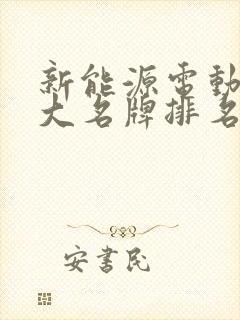 新能源電動
大名牌排名
安書民